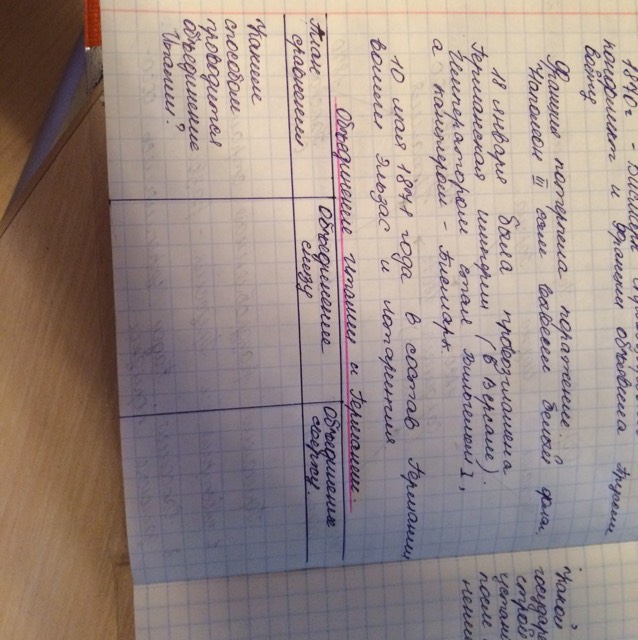 1870г -
конфликт и Франция объявила Пруссии
войну
Франция потерпела поражение.
Наполеон III
18 января была провозглашена
Германская империя (в Версале).
Императором стал Вильгельм I,
а канцлером - Бисмарк.
10 мая 1871 года в состав Германии
вошли Эльзас и Лотарингия
Объединение Италии и Германии.
План
сравнения
Объединение
снизу
Объединение
сверху
Каким
способом
проводится
объединение
Какой
государ
строй